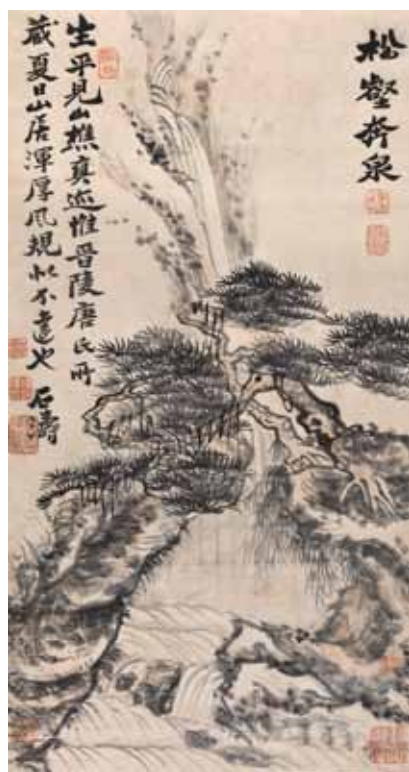 松壑奔泉
生平見山樵真迹惟晉陵唐氏所
藏夏日山居渾厚風規此不遠也 石濤